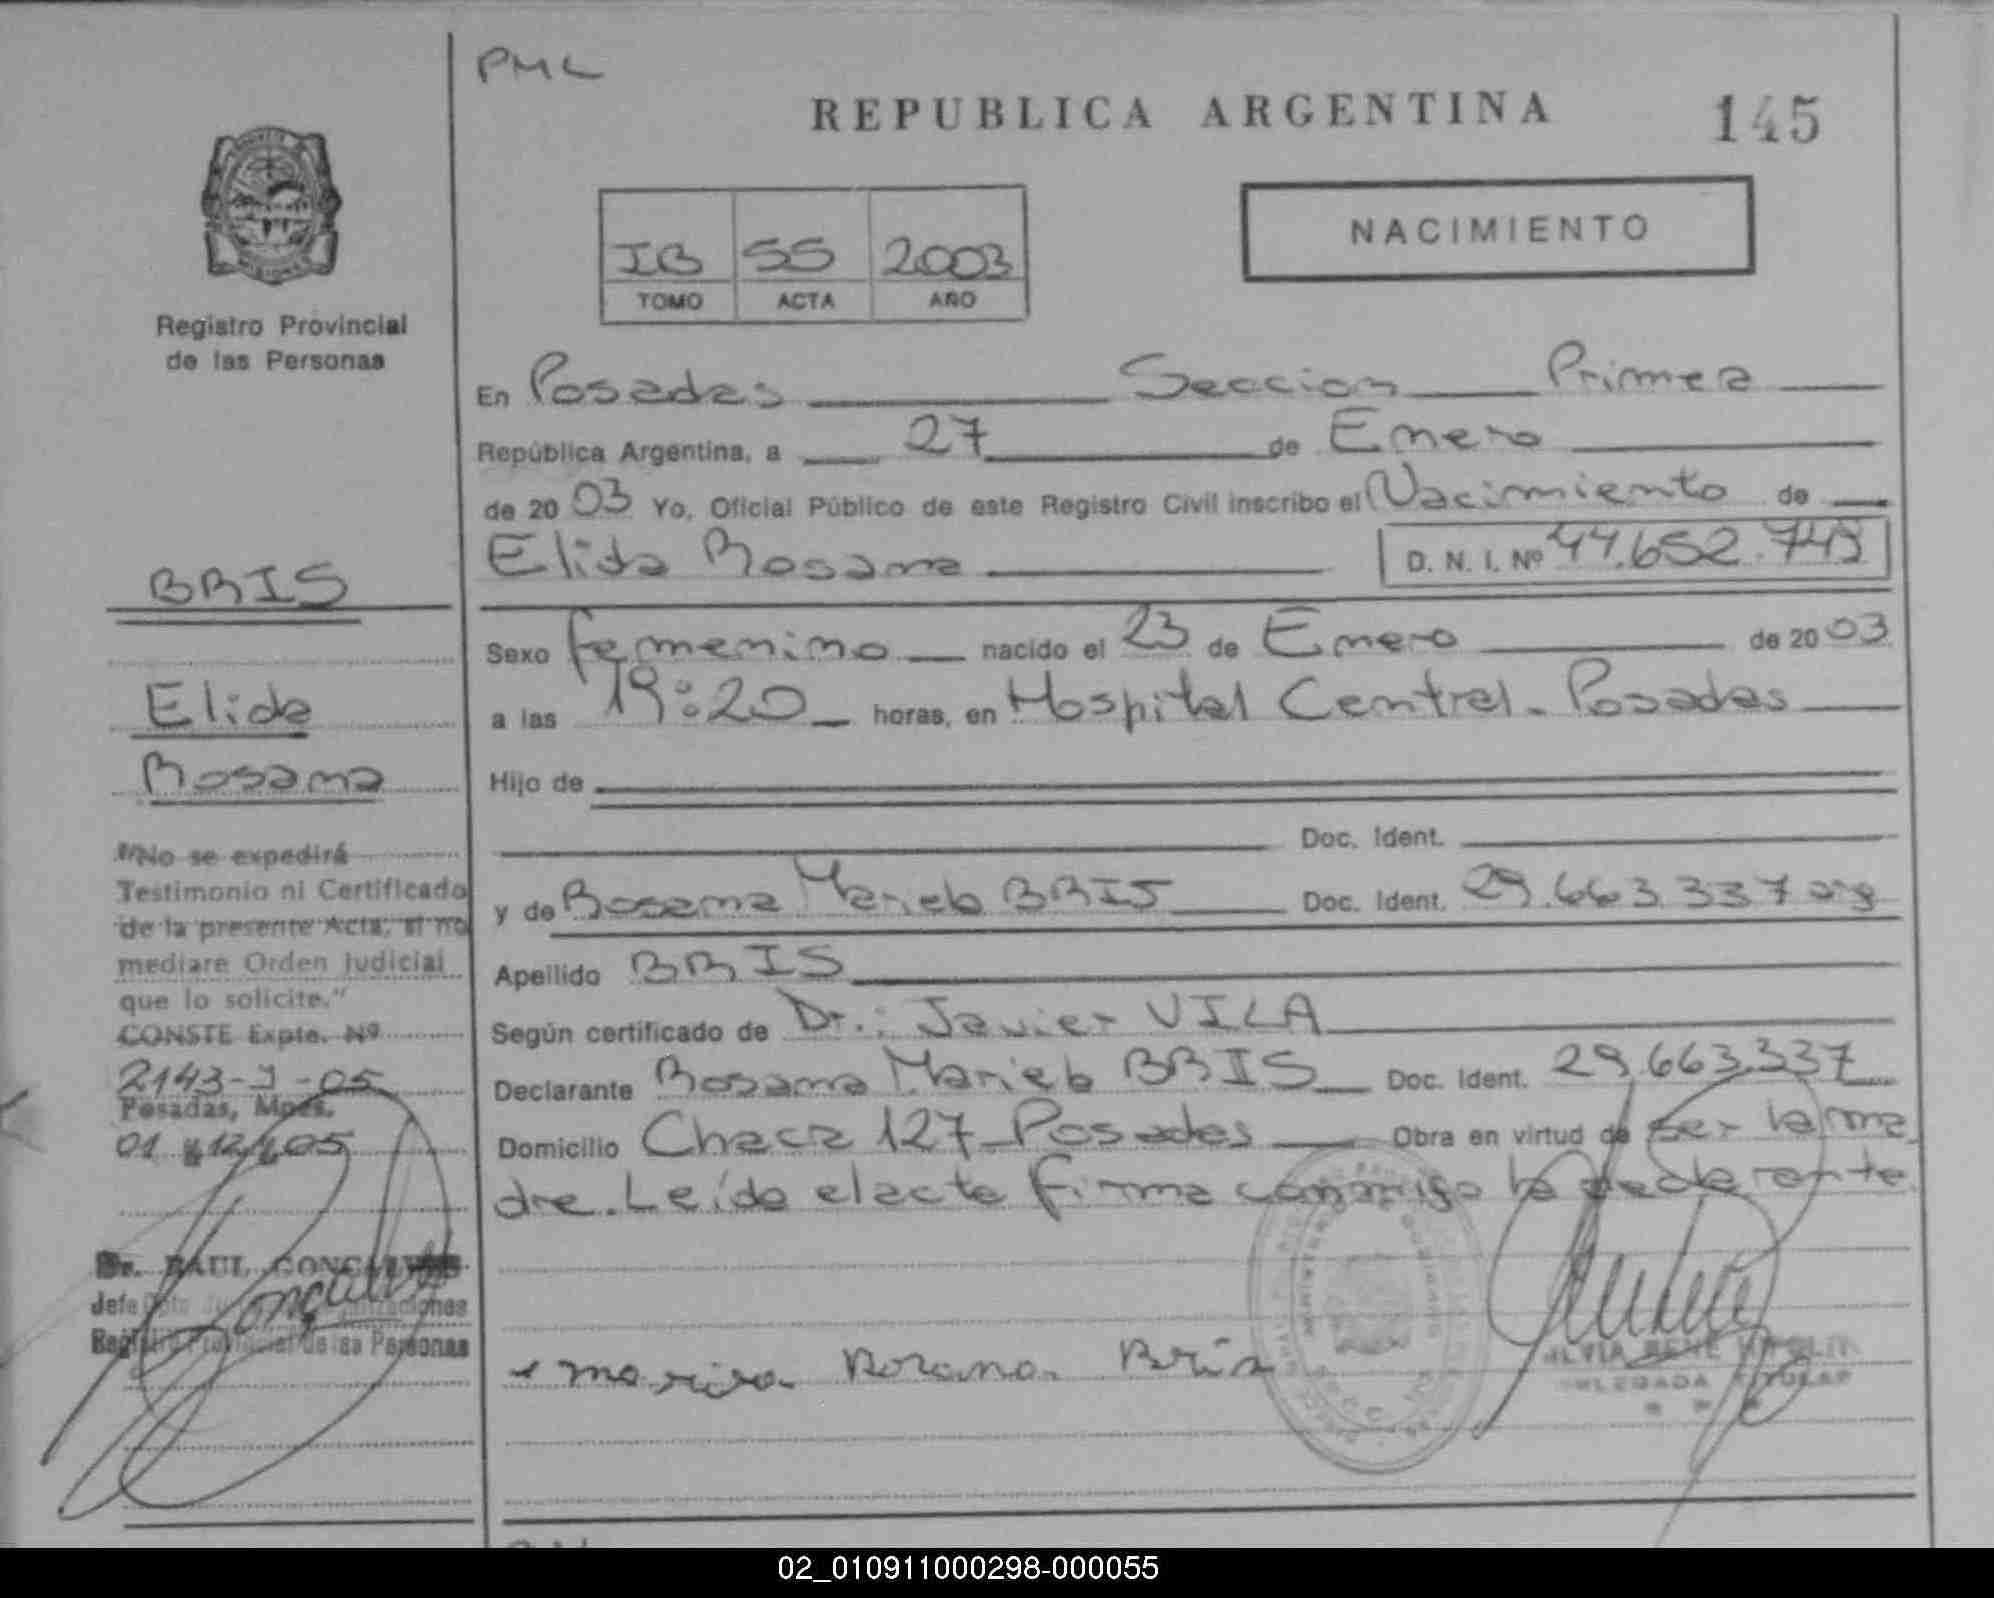 PML
REPUBLICA ARGENTINA
145
NACIMIENTO
IB 55 2003
TOMO ACTA AÑO
Registro Provincial
de las Personas
En Posadas Seccion Primera
República Argentina, a 27 de Enero
de 2003 Yo, Oficial Público de este Registro Civil inscribo el Nacimiento de
Elida Rosana D. N. I. Nº 44.652.743
Sexo femenino nacido el 23 de Enero de 2003
a las 19:20 horas, en Hospital Central - Posadas
Hijo de
Doc. Ident.
y de Rosana Mariela BRIS Doc. Ident. 29.663.337 arg
Apellido BRIS
Según certificado de Dr.: Javier VILA
Declarante Rosana Mariela BRIS Doc. Ident. 29.663.337
Domicilio Chacra 127 Posadas Obra en virtud de ser la ma
dre. Leída el acta firma conmigo la declarante
Rosana Bris
DELEGADA TITULAR
BRIS
Elida
Rosana
"No se expedirá
Testimonio ni Certificado
de la presente Acta, si no
mediare Orden Judicial
que lo solicite."
CONSTE Expte. Nº
2143-J-05
Posadas, Mnes.
01 12 05
Dr. RAUL GONCALVES
Jefe Dpto
Registro Provincial de las Personas
02_010911000298-000055